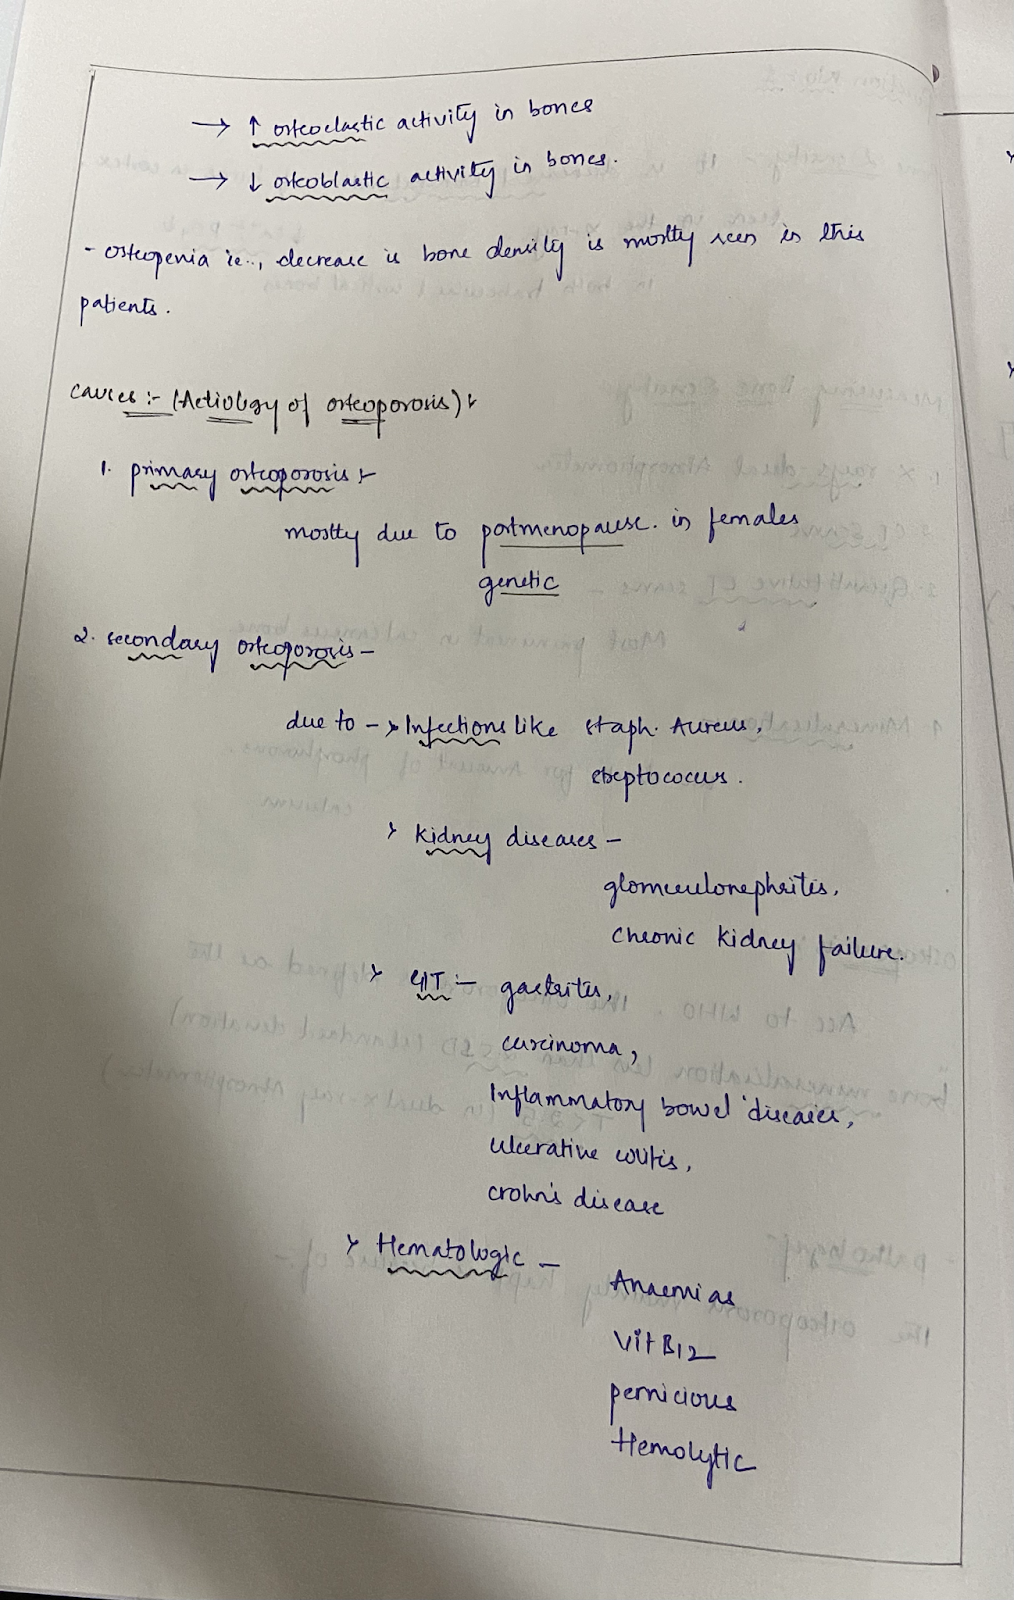 → ↑ osteoclastic activity in bones
→ ↓ osteoblastic activity in bones.
- osteopenia ie.., decrease is bone density is mostly seen in this
patients.
causes :- (Aetiology of osteoporosis) :-
1. primary osteoporosis :-
mostly due to postmenopause. in females
genetic
2. secondary osteoporosis -
due to -> Infections like staph. Aureus,
streptococcus.
> kidney diseases -
glomerulonephritis,
chronic kidney failure.
> GIT :- gastritis,
carcinoma,
Inflammatory bowel diseases,
ulcerative colitis,
crohn's disease
> Hematologic -
Anaemias
Vit B12
pernicious
Hemolytic